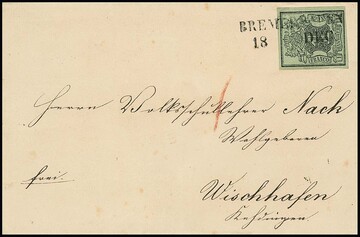 BREMERHAVEN
18 DEC
Herrn Volksschullehrer Nach
Wohlgeboren
frei.
Wischhafen
Kehdingen.